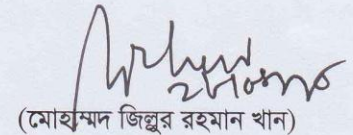 (মোহাম্মদ জিল্লুর রহমান খান)